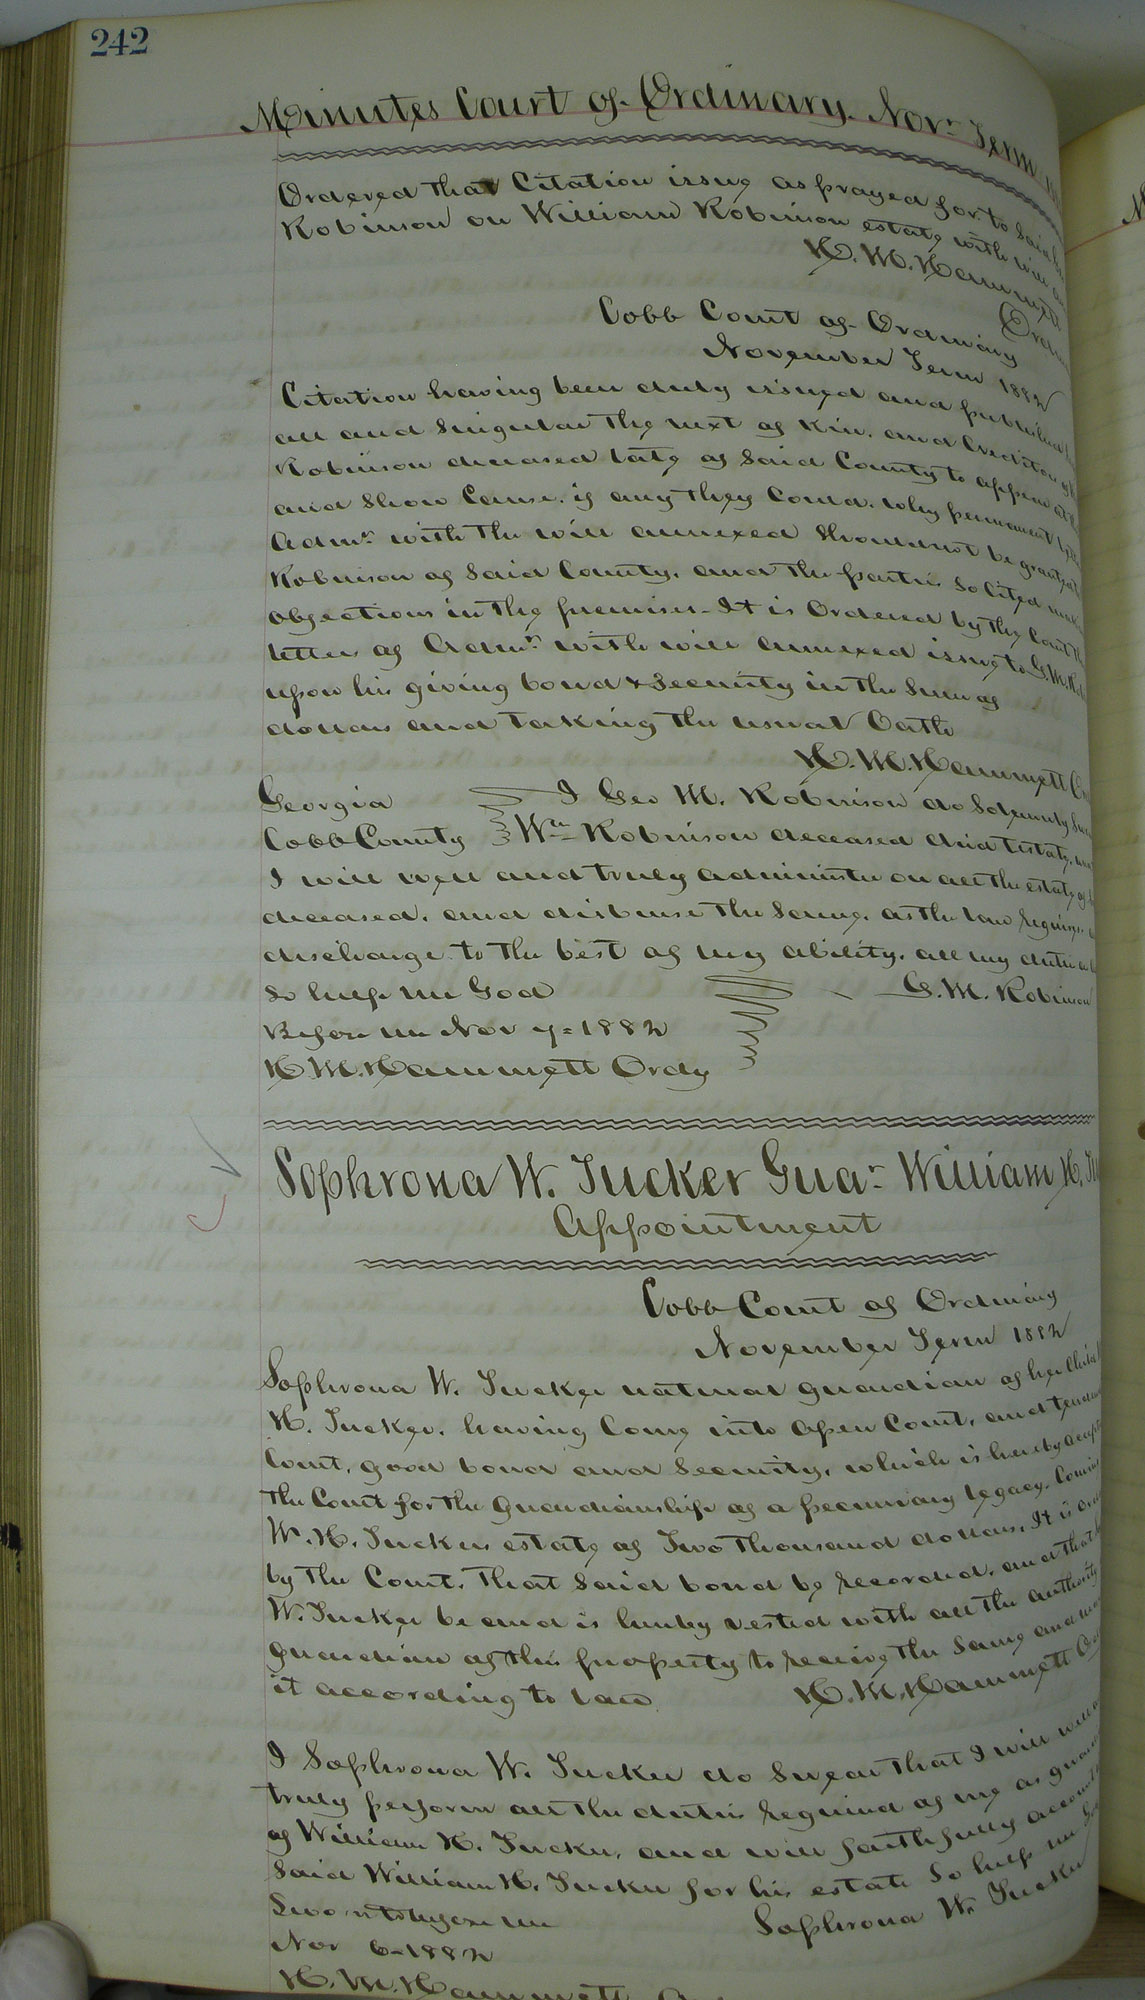 242
Minutes Court of Ordinary. Novr Term
Ordered that Citation issue as prayed for to said
Robinson on William Robinson estate with will
H. M. Hammett
Cobb Court of Ordinary
November Term 1882
Citation having been duly issued and published
all and singular the next of Kin. and Creditors of
Robinson deceased late of said County to appear at
and show Cause. if any they Could. why permanent
Admr with the will annexed should not be granted
Robinson of said County. and the parties so cited
objections in the premises. It is Ordered by the Court
letters of Admr with will annexed issue to G. M.
upon his giving bond & security in the sum of
dollars and taking the usual Oath
H. M. Hammett
Georgia I Geo M. Robinson do Solemnly
Cobb County Wm Robinson deceased died testate.
I will well and truly administer on all the estate of
deceased. and disburse the same. as the law requires.
discharge to the best of my ability. all my duties
So help me God G. M. Robinson
Before me Nov 7= 1882
H. M. Hammett Ordy
Sophrona W. Tucker Guar William H.
Appointment
Cobb Court of Ordinary
November Term 1882
Sophrona W. Tucker natural guardian of her Child
H. Tucker. having Come into open Court. and
Court, good bond and Security, which is hereby
the Court for the Guardianship of a pecuniary legacy.
W. H. Tuckers estate of Two thousand dollars. It is
by the Court. that said bond be recorded. and that
W. Tucker be and is hereby vested with all the authority
guardian of this property to receive the same and
it according to law H. M. Hammett
I Sophrona W. Tucker do swear that I will well
truly perform all the duties required of me as
of William H. Tucker. and will faithfully
said William H. Tucker for his estate So help me
Sworn to before me Sophrona W. Tucker
Nov 6-1882
H. M. Hammett